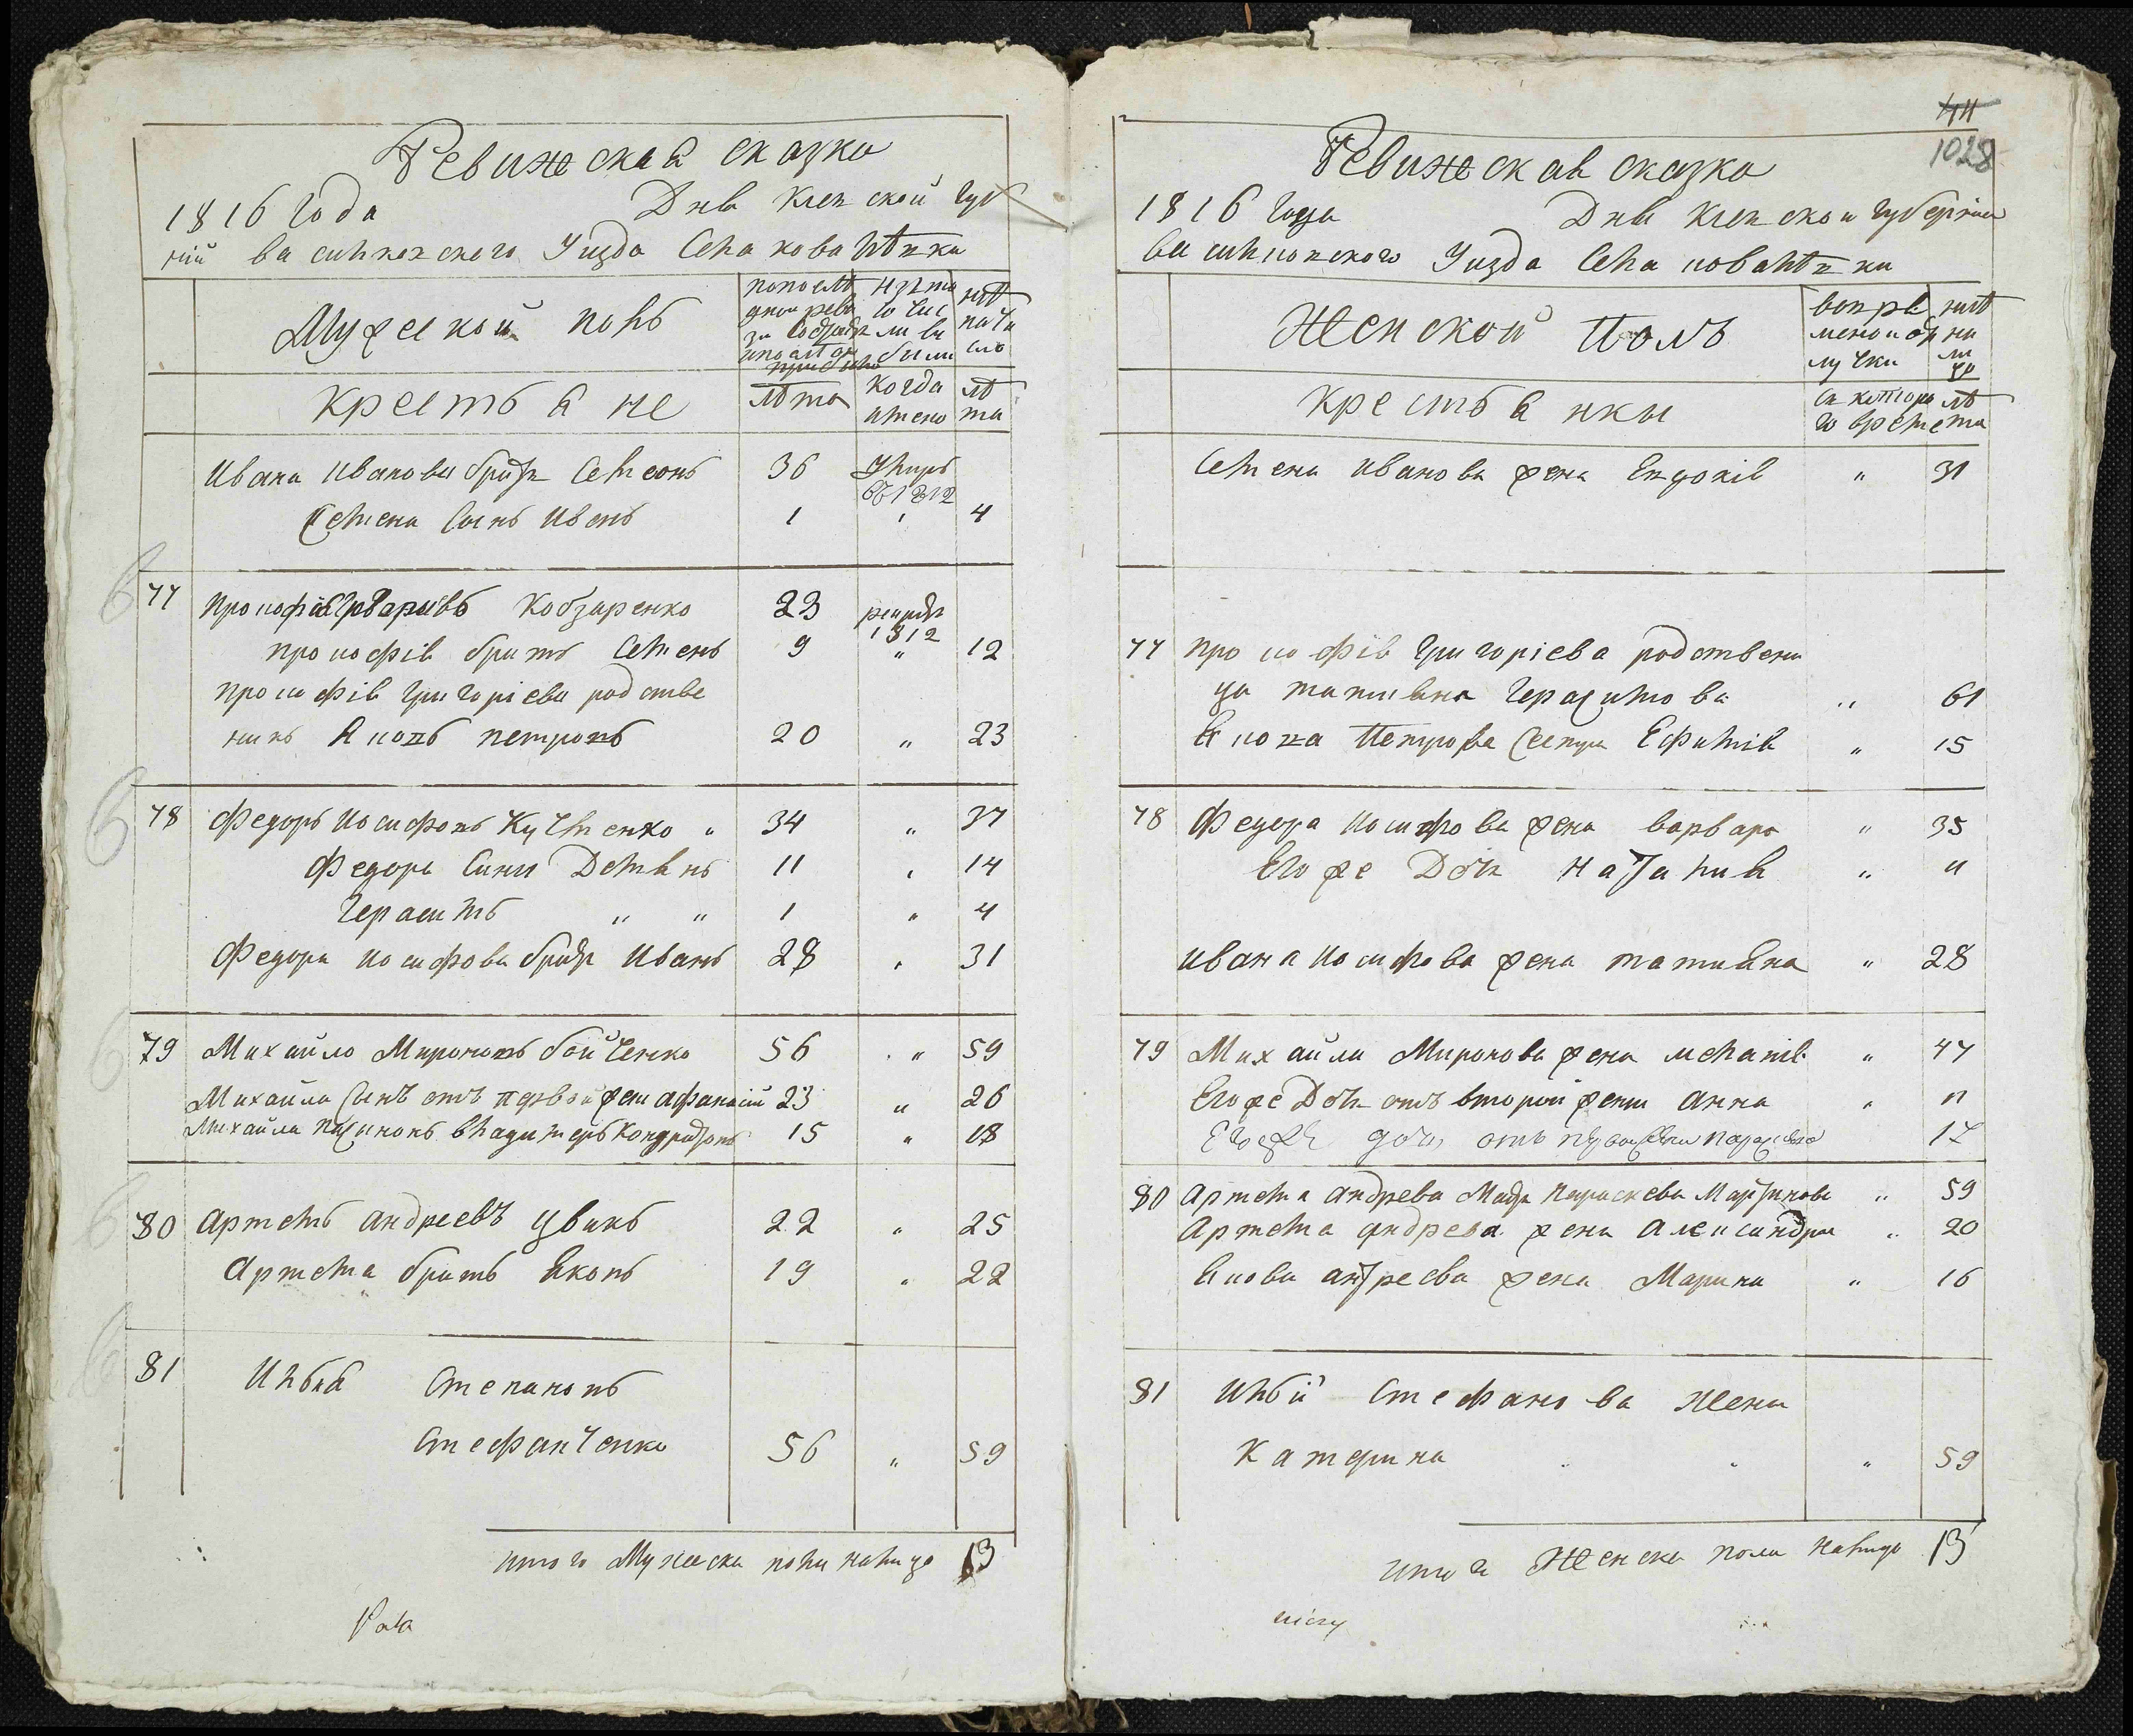 Ревижская сказка
1816 года Дня Киевской губ
ній Васильковского Уизда Села Ковалѣвки
Мужеской полъ
Крестьяне
лѣта
когда имено
лѣта
Ивана Иванова братъ Семеонъ 36 Умиръ въ 1812
Семена сынъ Иванъ 1 4
77 Прокофій Григоріевъ Кобзаренко 23 рекрутъ 1812
Прокофія братъ Семенъ 9 " 12
Прокофія Григоріева родстве
никъ Яковъ Петровъ 20 " 23
78 Федоръ Иосифовъ Кучменко " 34 " 37
Федора Сини Демянъ 11 " 14
Герасимъ " " 1 " 4
Федора Иосифова братъ Иванъ 28 " 31
79 Михайло Мироновъ бойченко 56 " 59
Михайла сынъ отъ первой жени афанасій 23 " 26
Михайла пасинокъ Владимеръ Кондратовъ 15 " 18
80 Артемъ андреевъ Цвикъ 22 " 25
Артема братъ Яковъ 19 " 22
81 Илья Степановъ
Стефанченко 56 " 59
итого Мужеска пола налицо 13
44
1028
Ревижская сказка
1816 года Дня Киевской губерніи
Васильковского Уизда Села Ковалѣвки
Женской Полъ
Крестьянки
съ которо
го времени
лѣта
Семена Иванова жена Евдокія " 31
77 Прокофія Григоріева родствени
ца татияна Герасимова " 61
Якова Петрова Сестра Ефимія " 15
78 Федора Иосифова жена варвара " 35
Его же Дочь Наталия " 11
Ивана Иосифова жена татияна " 28
79 Михайла Миронова жена меланія " 47
Его же Дочь отъ второй жени анна " 11
Его же дочь отъ первой жени параскева 17
80 Артема андрева Мать Параскева Мартинова " 59
Артема андрева жена Александра " 20
Якова андреева жена Марина " 16
81 Ильи Стефанова жена
Катерина " 59
итого Женска пола налицо 13